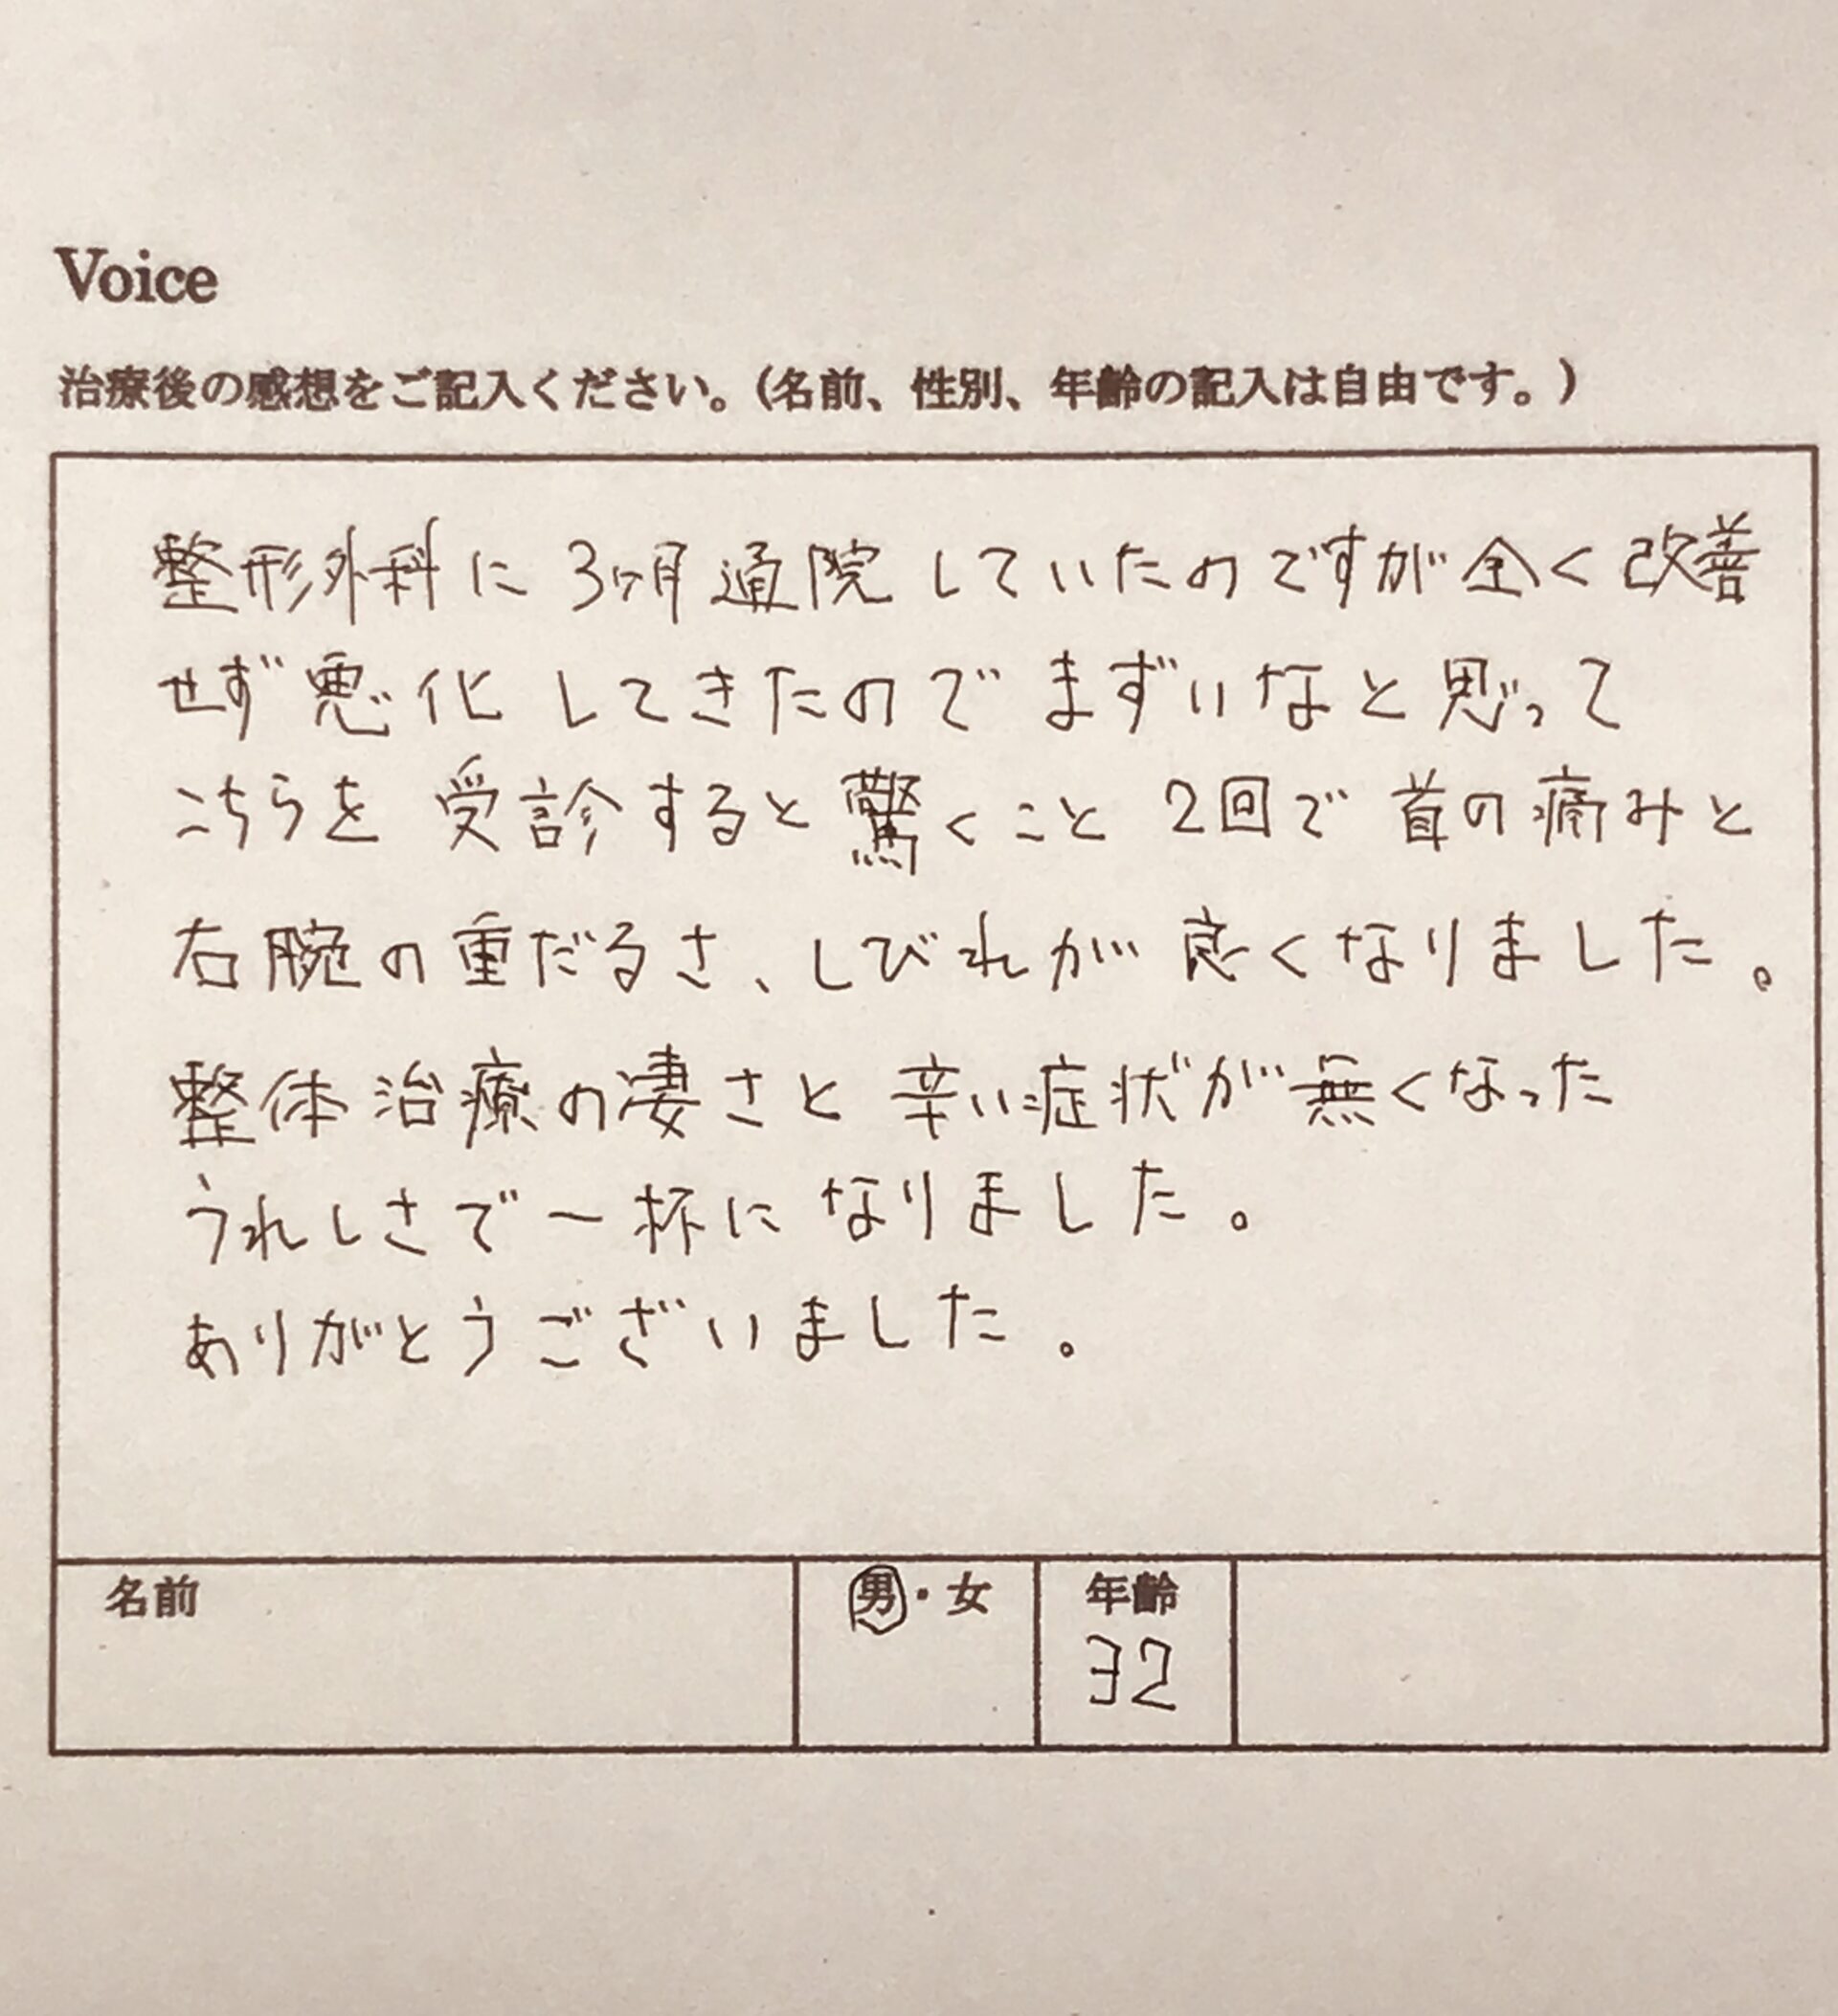 Voice
治療後の感想をご記入ください。(名前、性別、年齢の記入は自由です。)
整形外科に3ヶ月通院していたのですが全く改善
せず悪化してきたのでまずいなと思って
こちらを受診すると驚くこと2回で首の痛みと
右腕の重だるさ、しびれが良くなりました。
整体治療の凄さと辛い症状が無くなった
うれしさで一杯になりました。
ありがとうございました。
名前 男・女 年齢
32